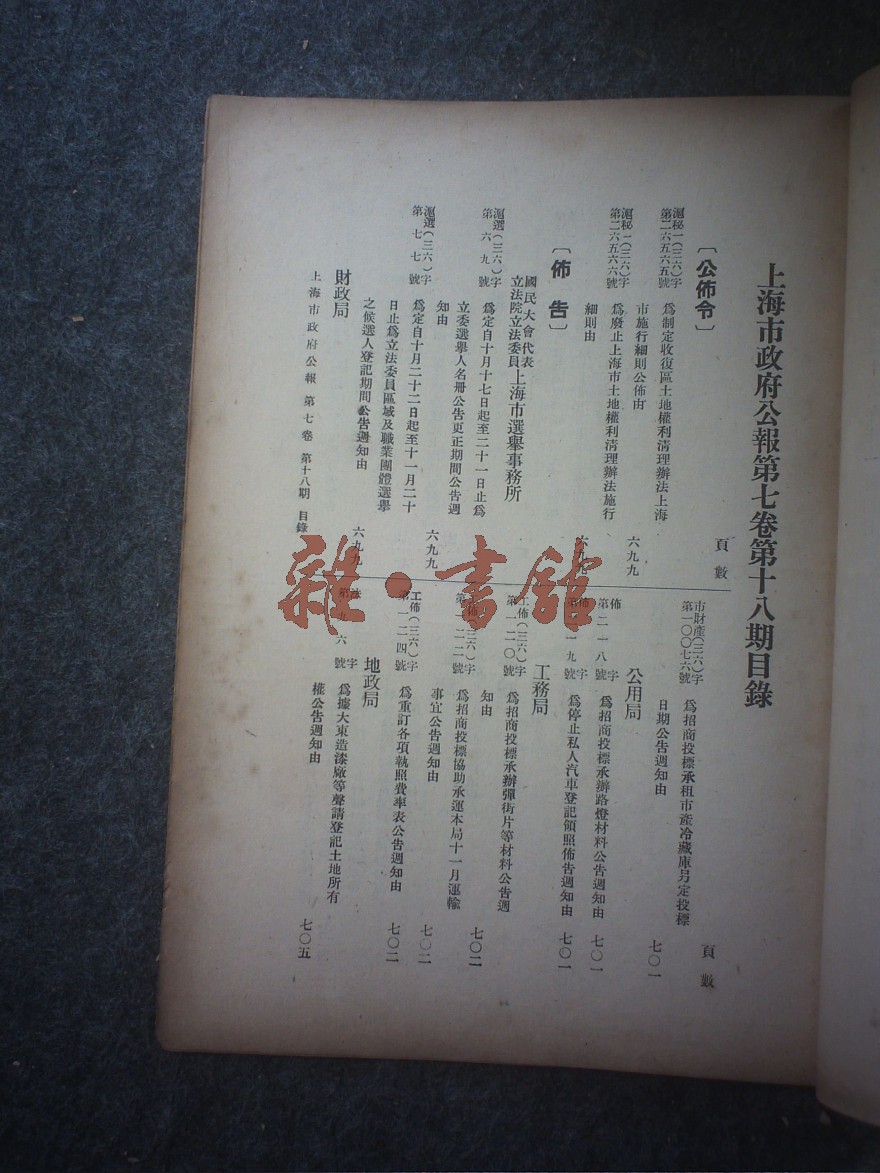 上海市政府公報第七卷第十八期目錄
頁數
〔公佈令〕
滬秘一(三六)字
第二六五六五號
為制定收復區土地權利清理辦法上海
市施行細則公佈由
六九九
滬秘一(三六)字
第二六五六六號
為廢止上海市土地權利清理辦法施行
細則由
六九九
〔佈告〕
國民大會代表
立法院立法委員上海市選舉事務所
滬選(三六)字
第六九號
為定自十月十七日起至二十一日止為
立委選舉人名冊公告更正期間公告週
知由
六九九
滬選(三六)字
第七七號
為定自十月二十二日起至十一月二十
日止為立法委員區域及職業團體選舉
之候選人登記期間公告週知由
六九九
財政局
上海市政府公報 第七卷 第十八期 目錄
頁數
市財產(三六)字
第一〇〇七六號
為招商投標承租市產冷藏庫另定投標
日期公告週知由
七〇一
公用局
佈字
第二一八號
為招商投標承辦路燈材料公告週知由
七〇一
佈字
第二一九號
為停止私人汽車登記領照佈告週知由
七〇一
工務局
工佈(三六)字
第一二〇號
為招商投標承辦彈街片等材料公告週
知由
七〇二
工佈(三六)字
第一二二號
為招商投標協助承運本局十一月運輸
事宜公告週知由
七〇二
工佈(三六)字
第一二四號
為重訂各項執照費率表公告週知由
七〇二
地政局
字
第九六號
為據大東造漆廠等聲請登記土地所有
權公告週知由
七〇五
雜·書館